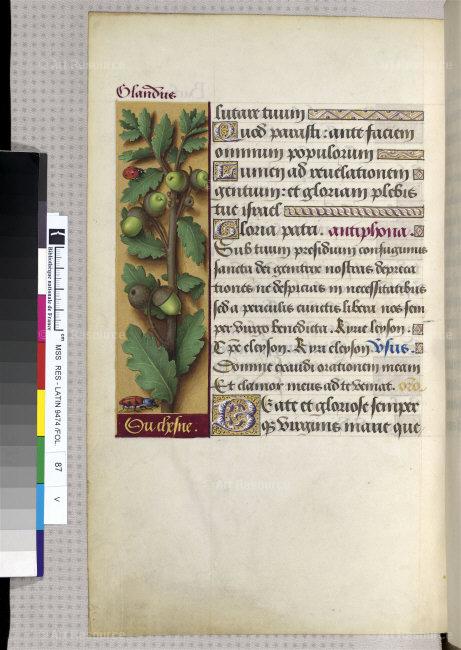 Glandue
lutare tuum
Quod parasti: ante faciem
omnium populorum
Lumen ad reuelationem
gentium: et gloriam plebis
tue israel
Gloria patri. antiphona.
Sub tuum presidium confugimus
sancta dei genitrix nostras depreca
tiones ne despicias in necessitatibus
sed a periculis cunctis libera nos sem
per virgo benedicta. Kyrie leyson.
Xpe eleyson. Kyrie eleyson Vsus.
Domine exaudi orationem meam
Et clamor meus ad te veniat. oro.
Beate et gloriose semper
qz virginis marie que
Du chesne.
Bibliothèque nationale de France
cm
MSS RES - LATIN 9474 /FOL.
87
V
Art Resource